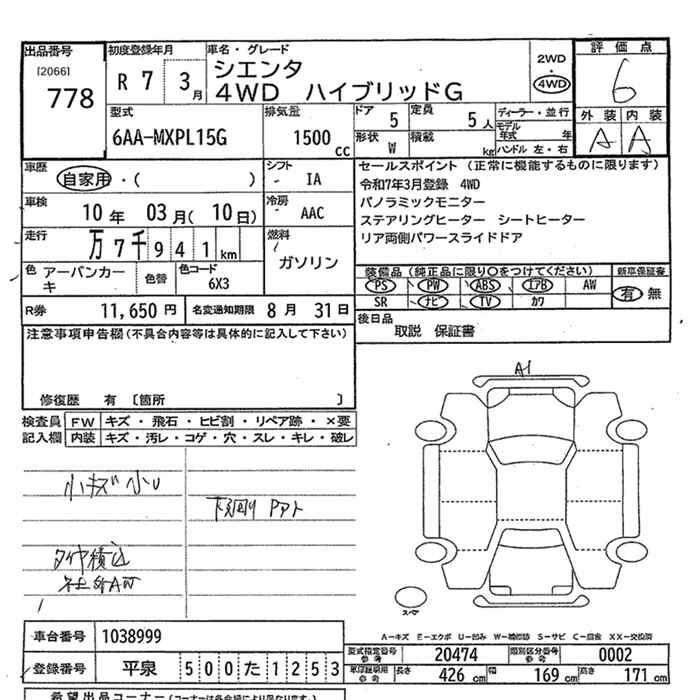 出品番号
[2066]
778
初度登録年月
R 7 3月
車名・グレード
シエンタ
4WD ハイブリッドG
2WD
4WD
評価点
6
外装 内装
A A
型式
6AA-MXPL15G
排気量
1500 cc
ドア 5
定員 5人
形状 W
積載 kg
ディーラー・並行
モデル年式 年
ハンドル 左・右
車歴
自家用・( )
シフト
- IA
車検
10年 03月(10日)
冷房
- AAC
走行
万7千941km
燃料
ガソリン
色 アーバンカーキ
色替
色コード
6X3
R券 11,650円
名変通知期限 8月 31日
セールスポイント(正常に機能するものに限ります)
令和7年3月登録 4WD
パノラミックモニター
ステアリングヒーター シートヒーター
リア両側パワースライドドア
装備品(純正品に限り○をつけてください)
新車保証書
PS PW ABS エアB AW
SR ナビ TV カワ
有・無
後日品
取説 保証書
注意事項申告欄(不具合内容等は具体的に記入して下さい)
修復歴 有 [箇所 ]
検査員記入欄
FW キズ・飛石・ヒビ割・リペア跡・×要
内装 キズ・汚レ・コゲ・穴・スレ・キレ・破レ
小キズ 小U
下回り
タイヤ積込
社外AW
A1
スペア
A-キズ E-エクボ U-凹み W-補修跡 S-サビ C-腐食 XX-交換済
車台番号 1038999
登録番号 平泉 500 た 1253
型式指定番号 参考 20474
類別区分番号 参考 0002
長さ 426cm 幅 169cm 高さ 171cm
希望出品コーナー